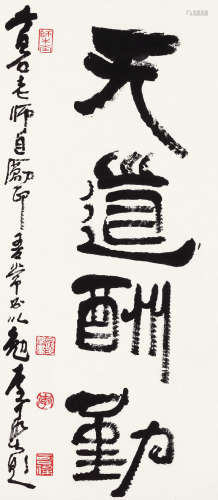 天道酬勤
黄胄老师自励印吾常书以勉 李燕题